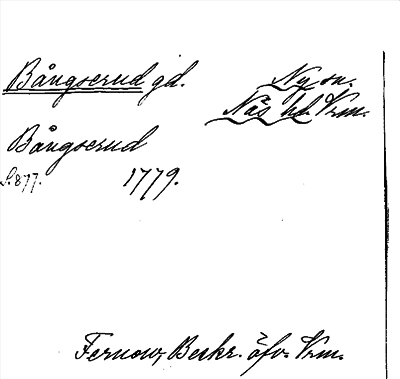 Bångserud gd. Ny sn.
Näs hd. Vrm.
Bångserud
S. 877. 1779.
Fernow, Beskr. öfv. Vrm.